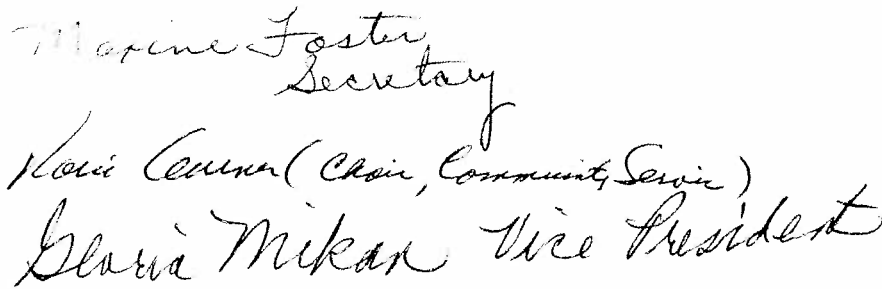 Maxine Foster
Secretary
(Chair, Community Service)
Gloria Mikan Vice President